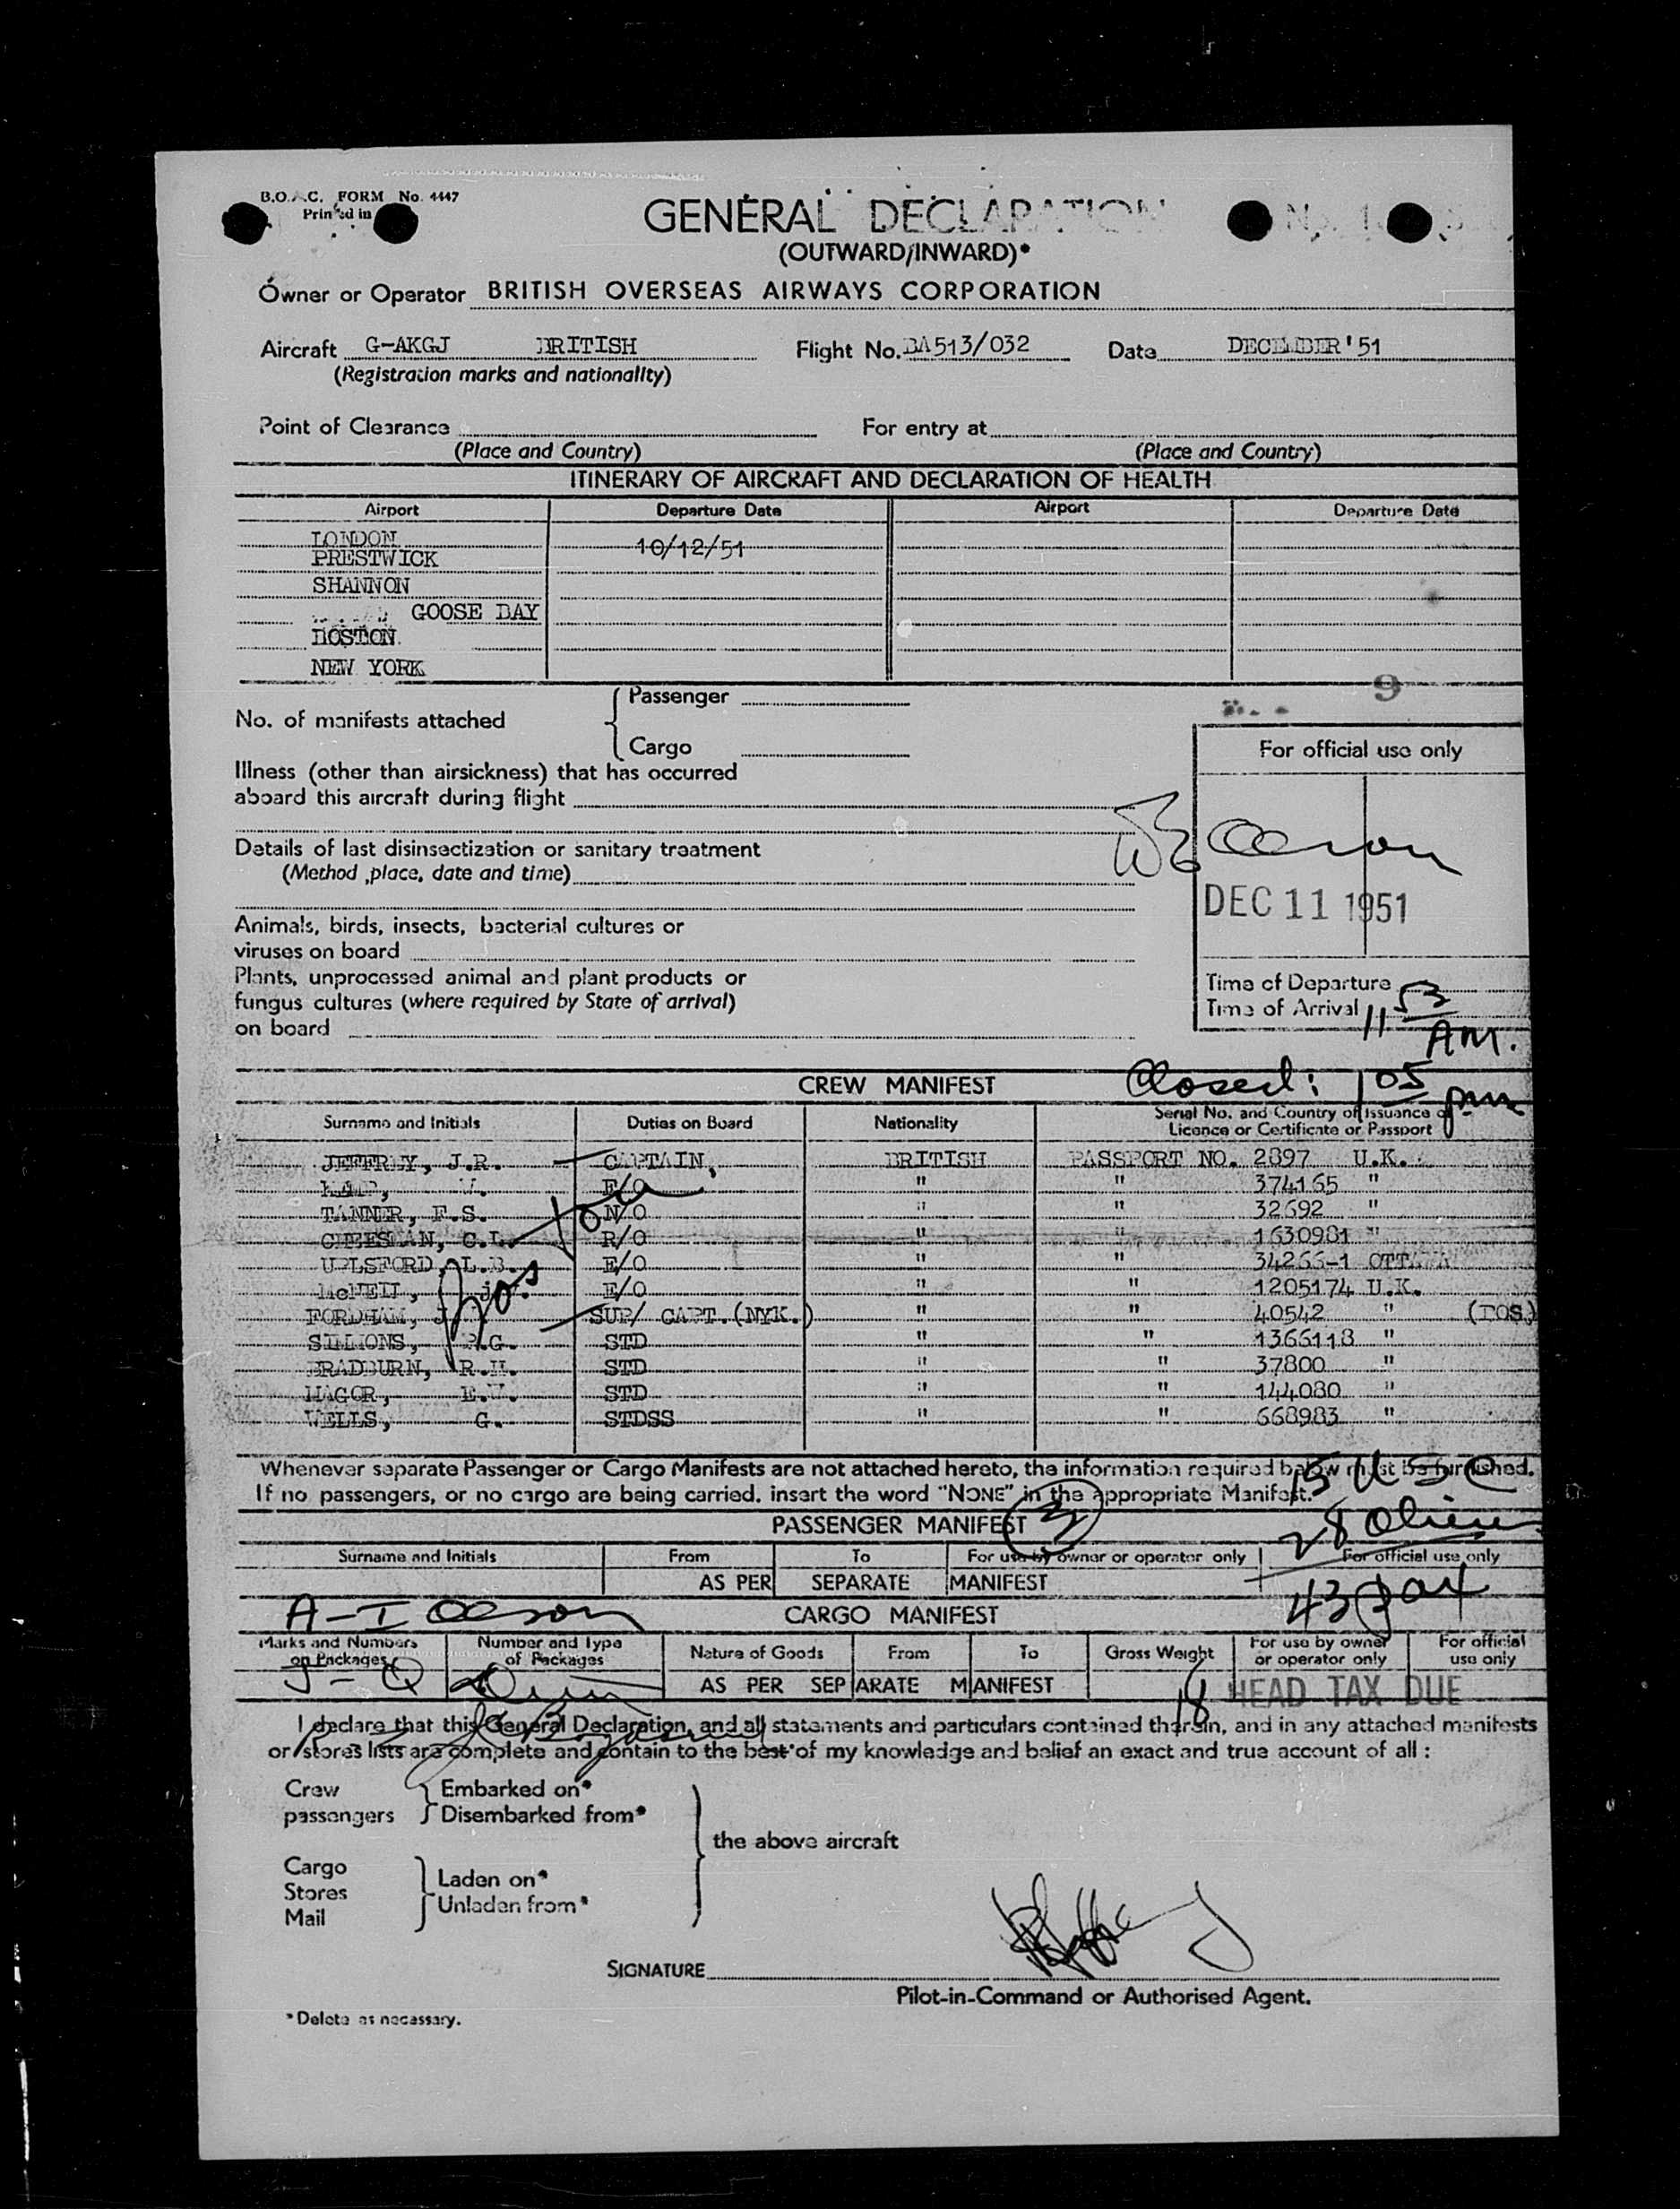 B.O.A.C. FORM No. 4447
Printed in
GENERAL DECLARATION
(OUTWARD/INWARD)*
Owner or Operator BRITISH OVERSEAS AIRWAYS CORPORATION
Aircraft G-AKGJ BRITISH Flight No. BA513/032 Date DECEMBER'51
(Registration marks and nationality)
Point of Clearance For entry at
(Place and Country) (Place and Country)
ITINERARY OF AIRCRAFT AND DECLARATION OF HEALTH
Airport Departure Date Airport Departure Date
LONDON
PRESTWICK 10/12/51
SHANNON
GOOSE BAY
BOSTON
NEW YORK
9
No. of manifests attached
Passenger
Cargo
For official use only
Illness (other than airsickness) that has occurred
aboard this aircraft during flight
Details of last disinsectization or sanitary treatment
(Method ,place, date and time)
DEC 11 1951
Animals, birds, insects, bacterial cultures or
viruses on board
Plants, unprocessed animal and plant products or
fungus cultures (where required by State of arrival)
on board
Time of Departure
Time of Arrival 11 53
AM.
Closed: 1 05 pm
CREW MANIFEST
Surname and Initials Duties on Board Nationality Serial No. and Country of Issuance of
Licence or Certificate or Passport
JEFFREY, J.R. CAPTAIN, BRITISH PASSPORT NO. 2897 U.K.
F/O " " 374165 "
TANNER, F.S. N/O " " 32692 "
CHEESMAN, C.L. R/O " " 1630981 "
L.B. E/O " " 34266-1 OTTAWA
McNEIL, J. E/O " " 1205174 U.K.
FORDHAM, J. SUP/ CAPT.(NYK.) " " 40542 " (BOS)
SIMMONS, R.G. STD " " 1366118 "
BRADBURN, R.H. STD " " 37800 "
MAGOR, E.W. STD " " 144080 "
WELLS, G. STDSS " " 668983 "
Whenever separate Passenger or Cargo Manifests are not attached hereto, the information required below must be furnished.
If no passengers, or no cargo are being carried, insert the word "NONE" in the appropriate Manifest.
15 USC
PASSENGER MANIFEST 3
28 Alien
Surname and Initials From To For use by owner or operator only For official use only
AS PER SEPARATE MANIFEST
43 pax
A-I Oleson CARGO MANIFEST
Marks and Numbers on Packages Number and Type of Packages Nature of Goods From To Gross Weight For use by owner or operator only For official use only
J-Q AS PER SEPARATE MANIFEST
18 HEAD TAX DUE
I declare that this General Declaration, and all statements and particulars contained therein, and in any attached manifests
or stores lists are complete and contain to the best of my knowledge and belief an exact and true account of all :
Crew Embarked on*
passengers Disembarked from*
the above aircraft
Cargo
Stores Laden on*
Mail Unladen from*
SIGNATURE
Pilot-in-Command or Authorised Agent.
*Delete as necessary.